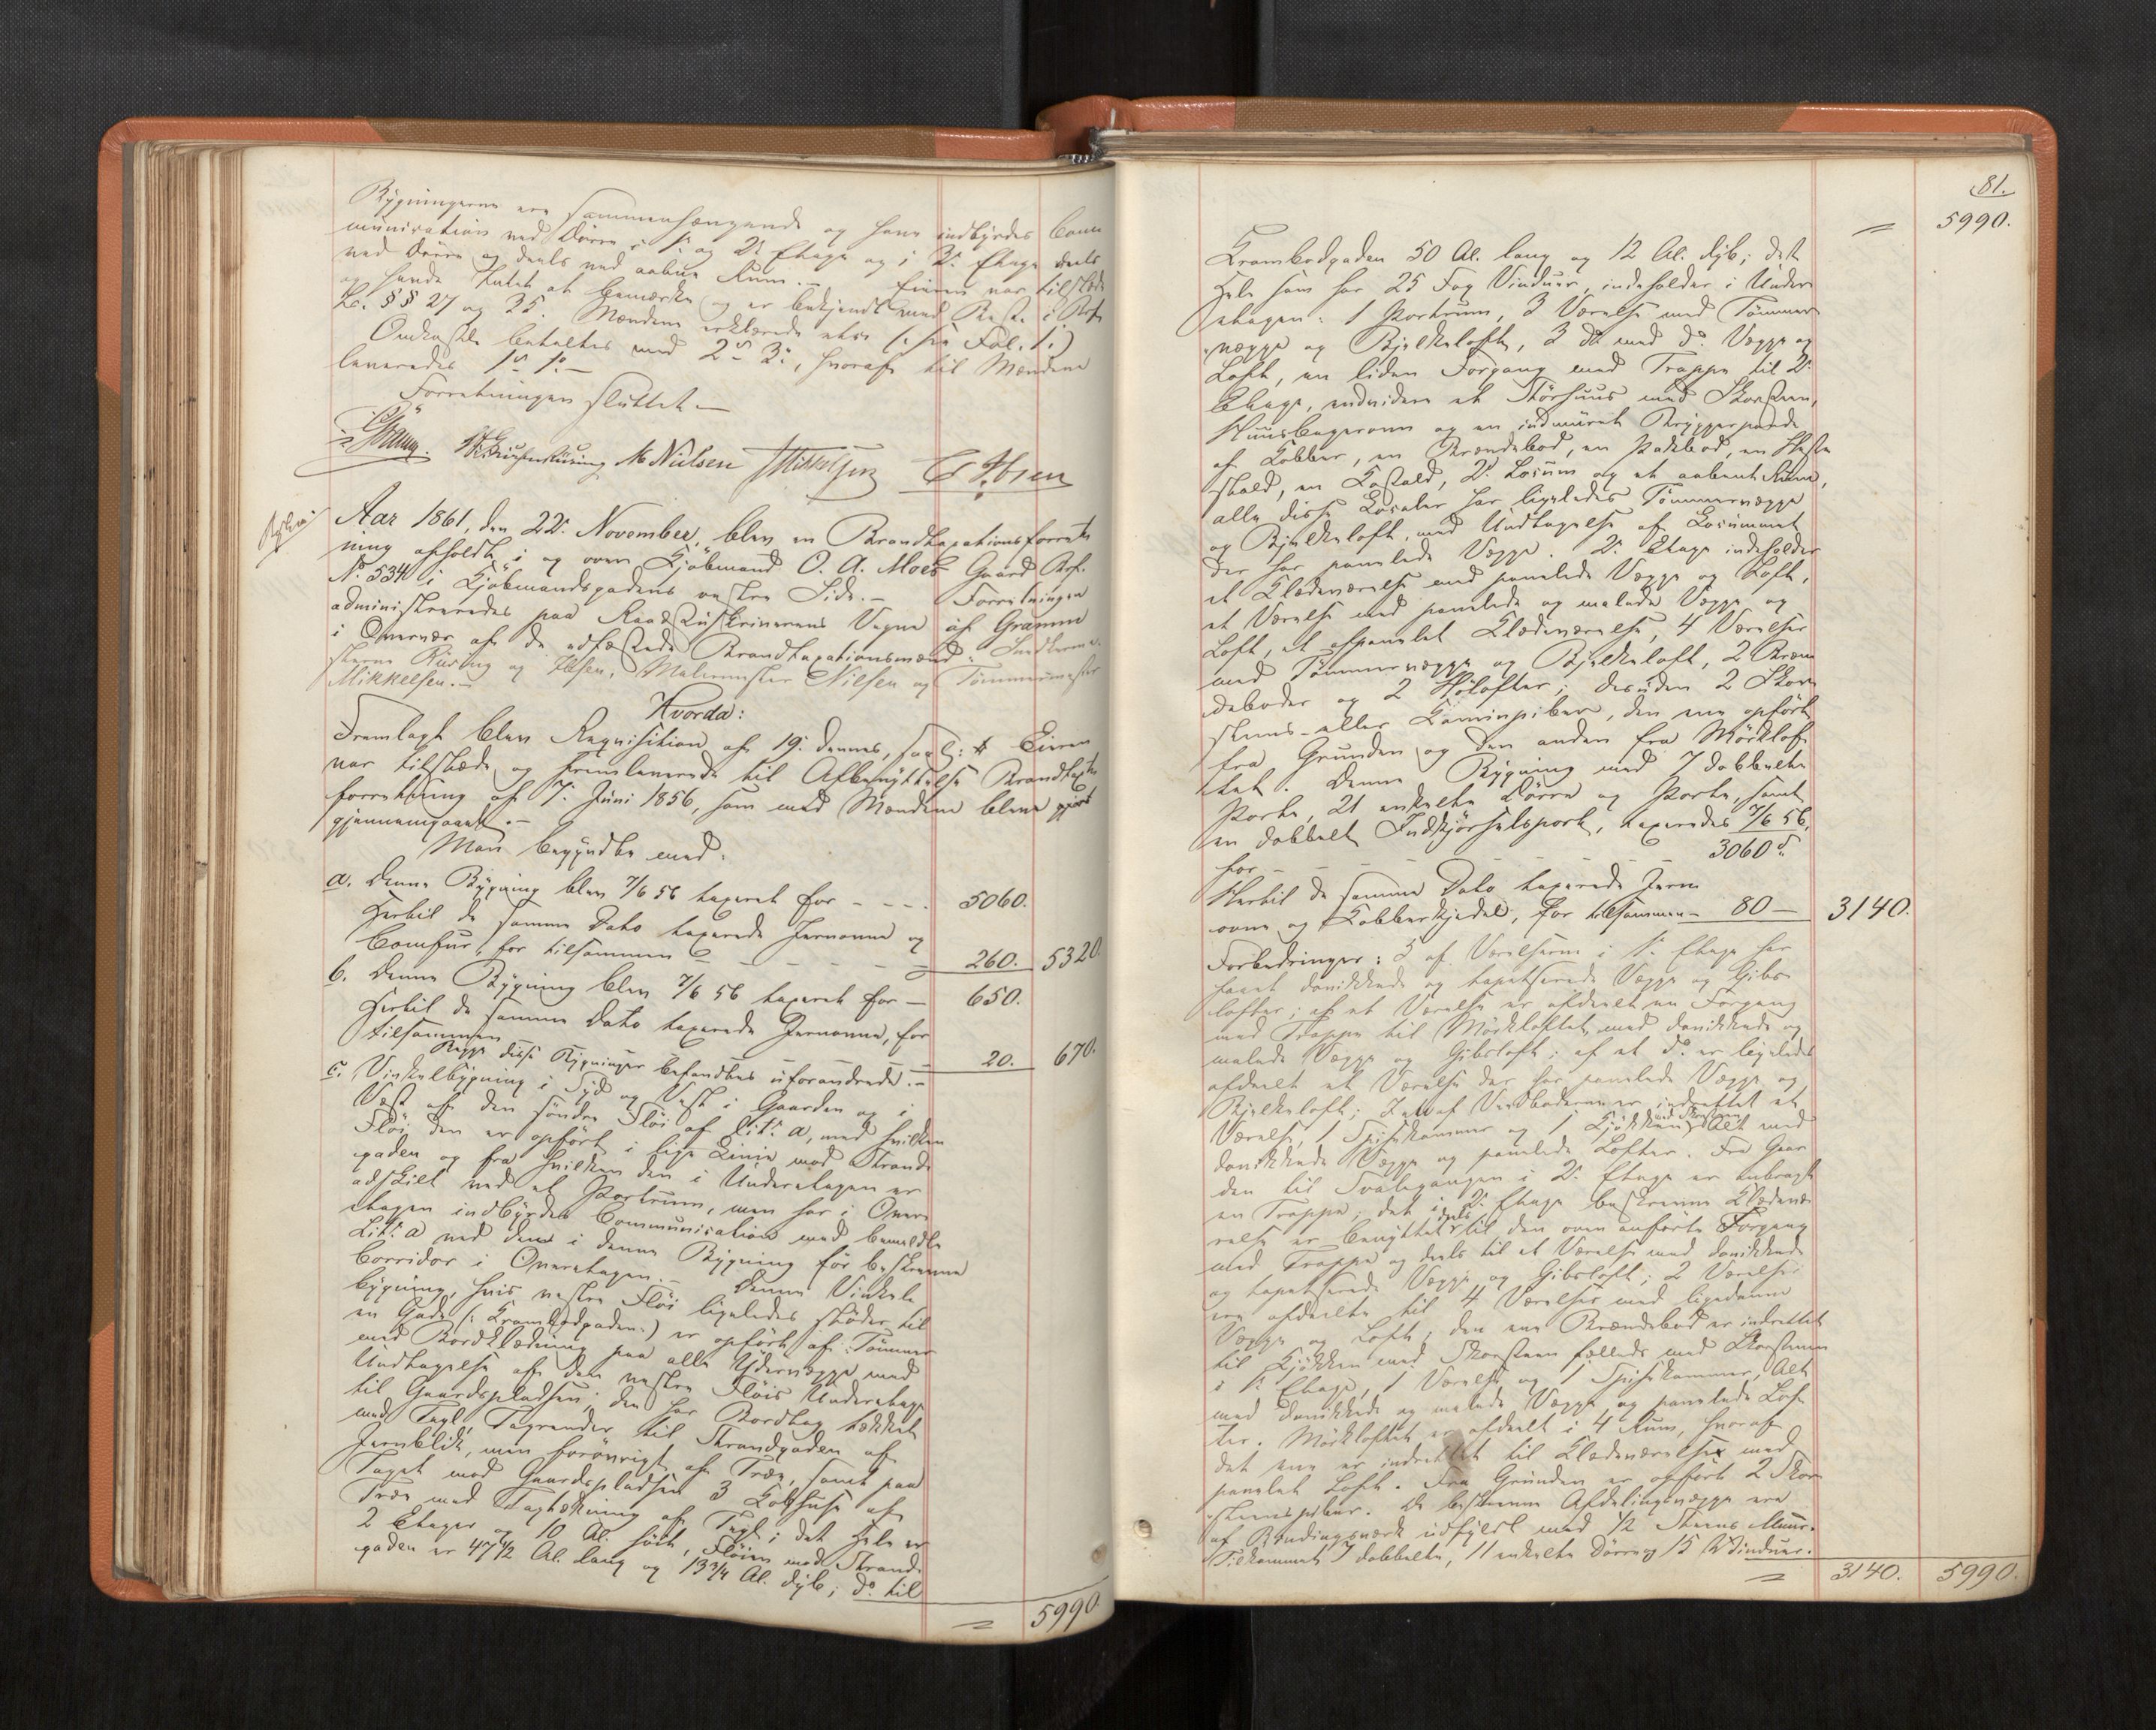 Bygningerne ere sammenhængende og have indbyrdes Com
munication ved Dörre i 1ste og 2den Etage og i 2den Etage deels
ved Dörre og deels ved aabne Rum. — Eieren var tilstæde
og havde Intet at bemærke og er bekjendt med Best. i Brl.
L. §§ 27 og 35. Mændene erklærede etc. (: see Fol. 1 :)
Omkostn. betaltes med 2 3, hvoraf til Mændene
leveredes 1 1. —
Forretningen sluttet —
Gram. M Nielsen JMikkelsen C. Ibsen
Aar 1861, den 22de November, blev en Brandtaxationsforret
ning afholdt i og over Kjöbmand O. A. Moes Gaard Br.
No. 534 i Kjöbmandsgadens vestre Side. — Forretningen
administreredes paa Raadstuskriverens Vegne af Gramm
i Overvær af de edfæstede Brandtaxationsmænd:
Riising og Ibsen, Malermester Nielsen og Tömmermester
Mikkelsen. —
Hvorda:
Fremlagt blev Requisition af 19de dennes, saal: # Eieren
var tilstæde og fremleverede til Afbenyttelse Brandtax
forretning af 7de Juni 1856, som med Mændene blev
gjennemgaaet. —
Man begyndte med:
a. Denne Bygning blev 7/6 56 taxeret for - - - - 5060.
Hertil de samme Dato taxerede Jernovne og
Comfur, for tilsammen - - - - - - 260. 5320.
b. Denne Bygning blev 7/6 56 taxeret for — 650.
Hertil de samme Dato taxerede Jernovne, for
tilsammen - 20. 670.
Begge disse Bygninger befandtes uforandrede. —
c. Vinkelbygning i Syd og Vest i Gaarden og i
Vest af den söndre Flöi af Litr. a, med hvilken
Flöi den er opfört i lige Linie mod Strand
gaden og fra hvilken den i Underetagen er
adskilt ved et Portrum, men har i Over
etagen indbyrdes Communication med bemeldte
Litr. a ved den i denne Bygning för beskrevne
Corridor i Overetagen. — Denne Vinkel
bygning, hvis vestre Flöi ligeledes stöder til
en Gade (: Krambodgaden :) er opfört af Tömmer
med Bordklædning paa alle Ydervægge med
Undtagelse af den vestre Flöis Underetage
til Gaardspladsen; den har Bordtag tækket
med Tagl, Tagrender til Strandgaden af
Jernblik, men forövrigt af Træ, samt paa
Taget mod Gaardspladsen 3 Kolthuse af
Træ med Tagtækning af Tagl; det Hele er
2 Etager og 10 Al. höit, Flöien mod Strand
gaden er 47 1/2 Al. lang og 13 3/4 Al. dyb; do. til
= 5990.
81.
= 5990.
Krambodgaden 50 Al. lang og 12 Al. dyb; det
Hele som har 25 Fag Vinduer, indeholder i Under
etagen: 1 Portrum, 3 Værelser med Tömmer
vægge og Bjelkeloft, 3 do. med do. Vægge og
Loft, en liden Forgang med Trappe til 2den
Etage, endvidere et Störhuus med Skorsteen,
Huusbagerovn og en indmuret Bryggerpande
af Kobber, en Brændebod, en Pakbod, en Heste
stald, en Kostald, 2de Locum og et aabent Rum,
alle disse Localer har ligeledes Tömmervægge
og Bjelkeloft, med Undtagelse af Locummet
der har panelede Vægge. 2den Etage indeholder
et Klædeværelse med panelede Vægge og Loft,
et Værelse med panelede og malede Vægge og
Loft, et afpanelet Klædeværelse, 4 Værelser
med Tömmervægge og Bjelkeloft, 2 Bræn
deboder og 2 Höilofter; desuden 2 Skor
steens- eller Kaminpiber, den ene opfört
fra Grunden og den anden fra Mörklof
tet. Denne Bygning med 7 dobbelte
Porte, 21 enkelte Dörre og Porte, samt
en dobbelt Indkjörselsport, taxeredes 7/6 56,
for - - - - - - - 3060 d.
Hertil de samme Dato taxerede Jern
ovne og Kobberkjedel, for tilsammen - 80 — 3140.
Forbedringer: 3 af Værelserne i 1ste Etage har
faaet donikkede og tapetserede Vægge og Gibs
lofter; af et Værelse er afdeelt en Forgang
med Trappe til Mörkloftet, med donikkede og
malede Vægge og Gibsloft; af et do. er ligeledes
afdeelt et Værelse der har panelede Vægge og
Bjelkeloft; I et af Vedboderne er indrettet et
Værelse, 1 Spisekammer og 1 Kjökken med Skorsteen, Alt med
donikkede Vægge og panelede Lofter. Fra Gaar
den til Svalegangen i 2den Etage er anbragt
en Trappe; det i 2den Etage beskrevne Klædevæ
relse er benyttet deels til den oven anförte Forgang
med Trappe og deels til et Værelse med donikkede
og tapetserede Vægge og Gibsloft; 2 Værelser
ere afdeelte til 4 Værelser med ligedanne
Vægge og Loft; den ene Brændebod er indrettet
til Kjökken med Skorsteen fælleds med Skorstenen
i 1ste Etage, 1 Værelse og 1 Spisekammer, Alt
med donikkede og malede Vægge og panelede Lof
ter. Mörkloftet er afdeelt i 4 Rum, hvoraf
det ene er indrettet til Klædeværelse med
panelet Loft. Fra Grunden er opfört 2 Skor
steenspiber. De beskrevne Afdelingsvægge ere
af Bindingsværk udfyldt med 1/2 Steens Muur.
Tilkommet 7 dobbelte, 11 enkelte Dörre og 15 Vinduer.
= 3140. 5990.